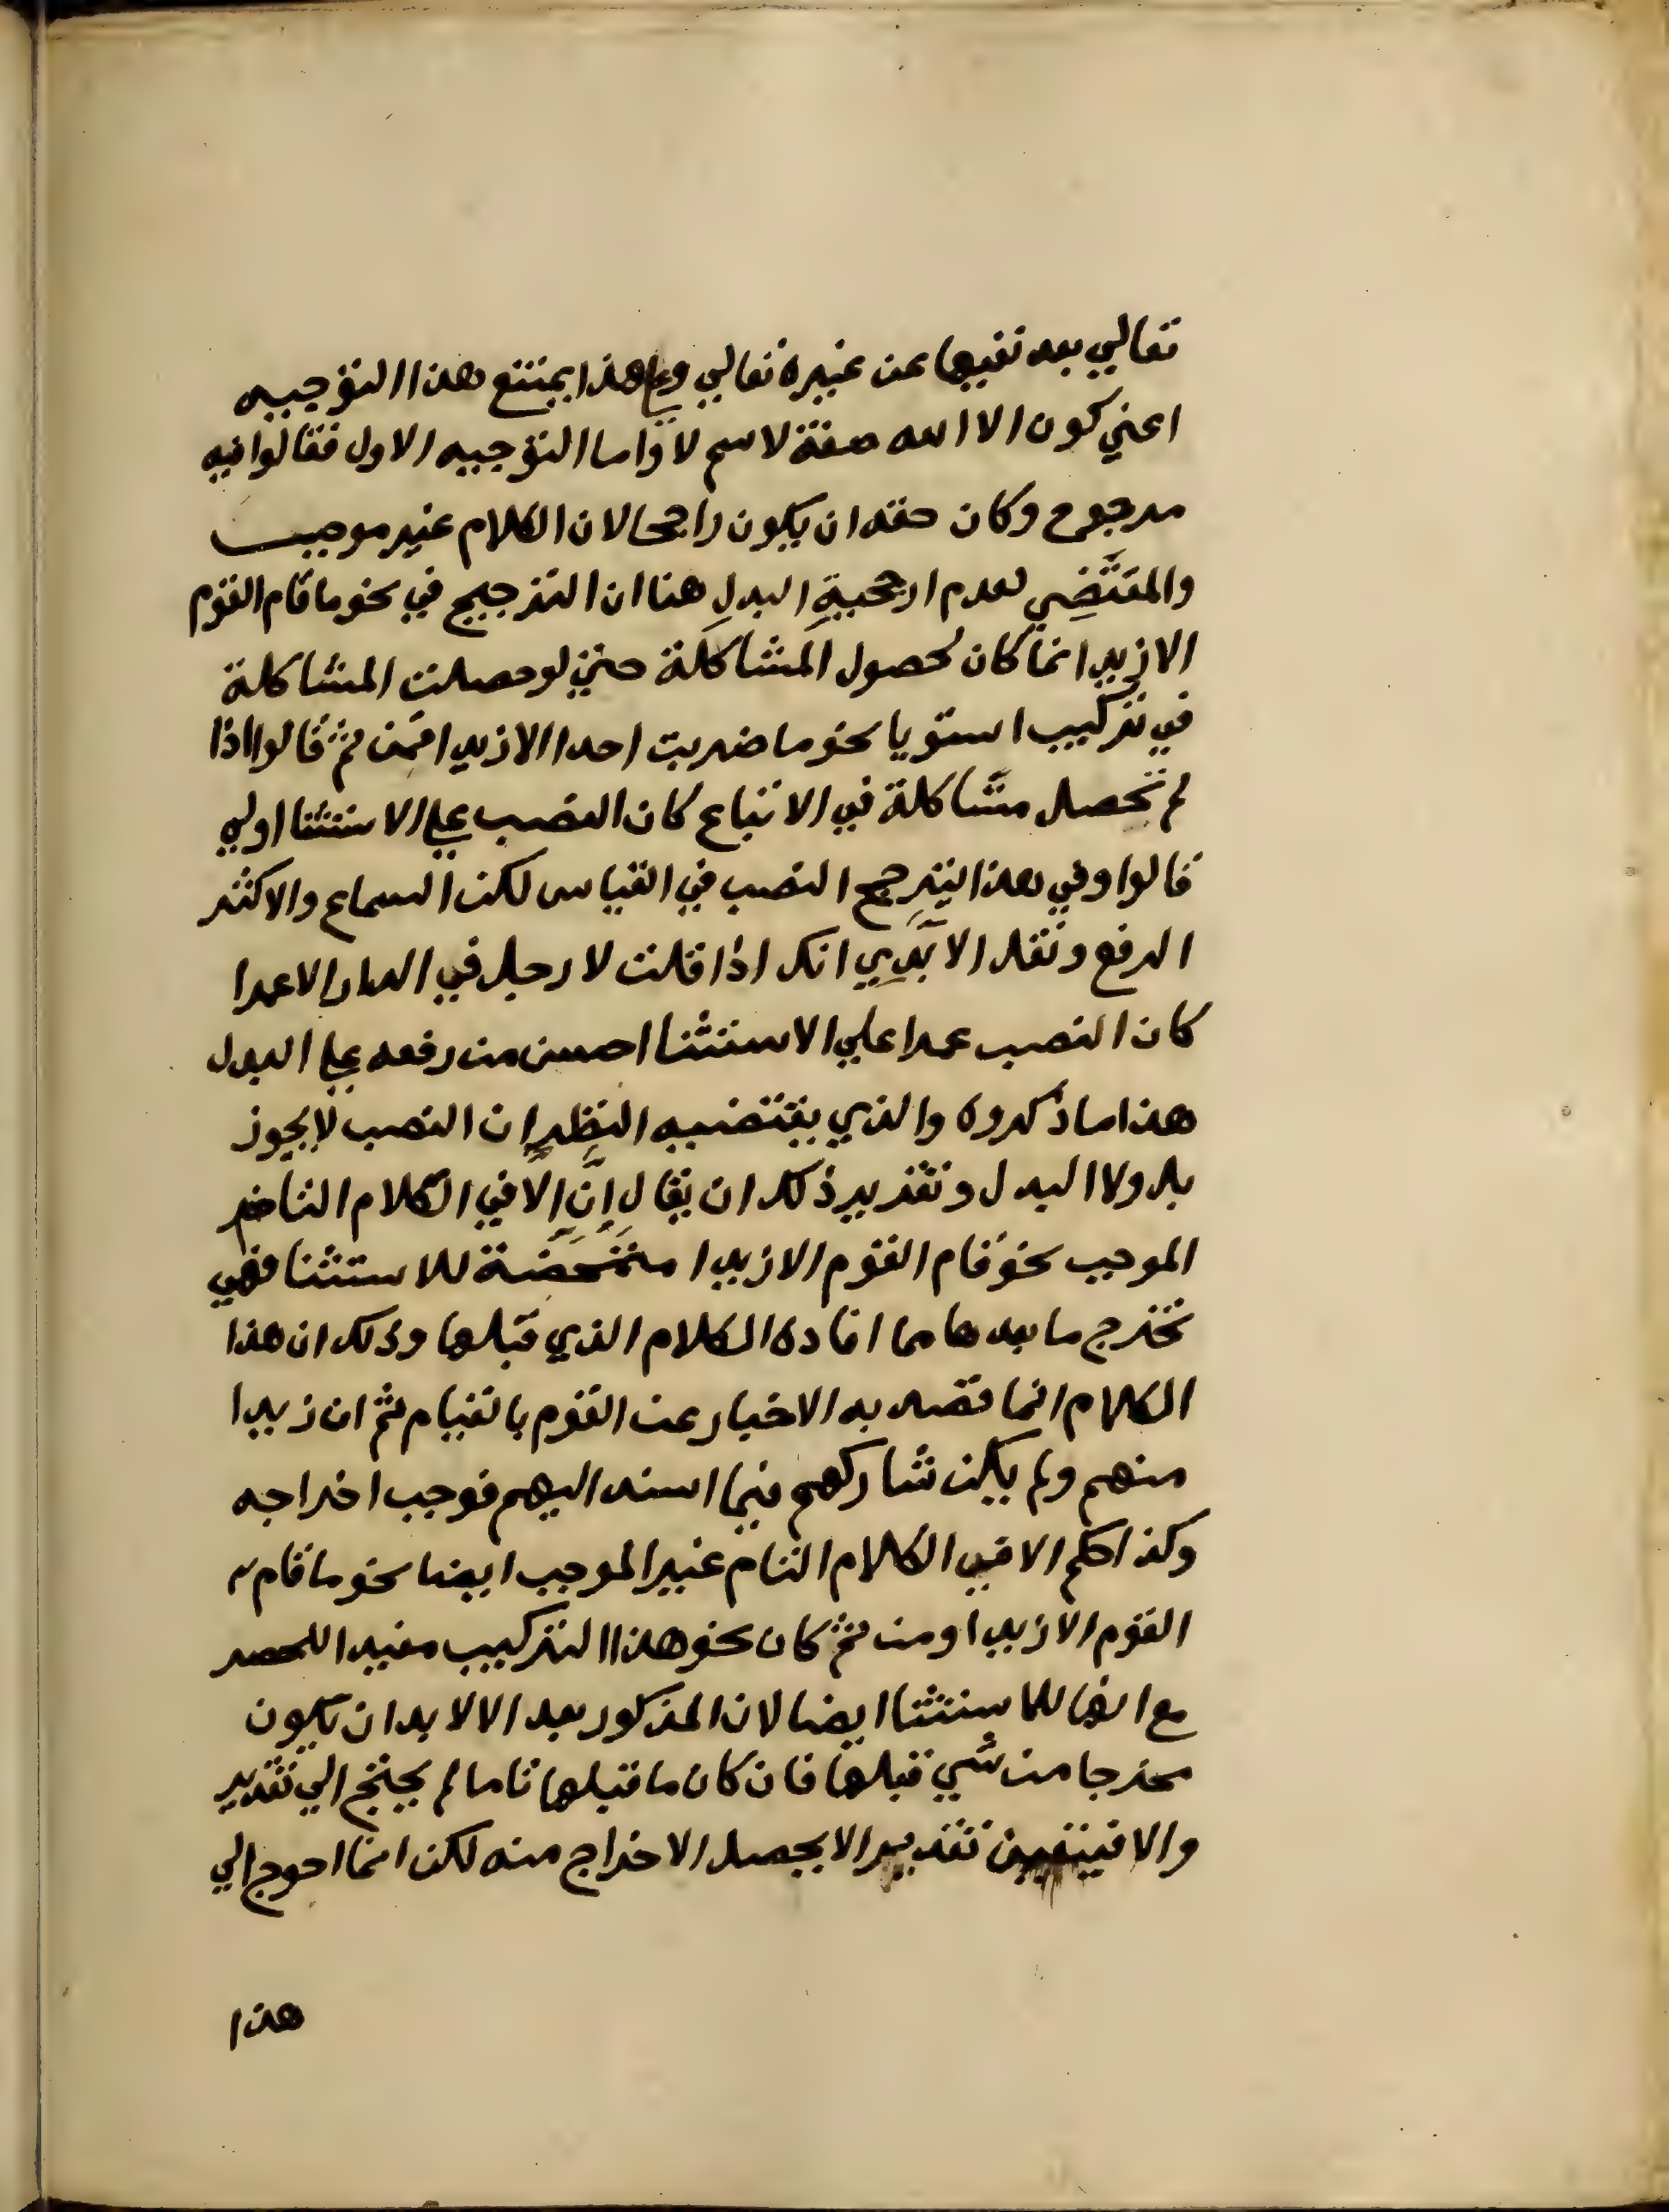 تعالي بعد نفيها عن غيره تعالي وعلي هذا يمتنع هذا التوجيه
اعني كون الا الله صفة لاسم لا واما التوجيه الاول فقالوا فيه
مرجوح وكان حقه ان يكون راجحا لان الكلام غير موجب
والمقتضِي لعدم ارجحيةِ البدلِ هنا ان الترجيح في نحو ما قام القوم
الا زيد انما كان لحصول المشاكلة حتي لو حصلت المشاكلة
في تركيب استويا نحو ما ضربت احدا الا زيدا فمن ثم قالوا اذا
لم تحصل مشاكلة في الاتباع كان النصب علي الاستثنا اولي
قالوا وفي هذا يترجح النصب في القياس لكن السماع والاكثر
الرفع ونقل الابَّدِي انك اذا قلت لا رجل في الدار الا عمرا
كان النصب عمرا علي الاستثنا احسن من رفعه علي البدل
هذا ما ذكروه والذي يقتضيه النظر ان النصب لا يجوز
بل ولا البدل وتقرير ذلك ان يقال إنّ إلّا في الكلام التام
الموجب نحو قام القوم الا زيدا متمحِّضة للاستثنا فهي
تخرج ما بعدها مما افاده الكلام الذي قبلها وذلك ان هذا
الكلام انما قصد به الاخبار عن القوم بالقيام ثم ان زيدا
منهم ولم يكن شاركهم فيما اسند اليهم فوجب اخراجه
وكذا حكم الا في الكلام التام غير الموجب ايضا نحو ما قام
القوم الا زيدا ومن ثم كان نحو هذا التركيب مفيدا للحصر
مع انها للاستثنا ايضا لان المذكور بعد الا لا بد ان يكون
مخرجا من شي قبلها فان كان ما قبلها تاما لم يحتج الي تقدير
والا فيتعين تقدير الا يحصل الاخراج منه لكن انما احوج الي
هذا